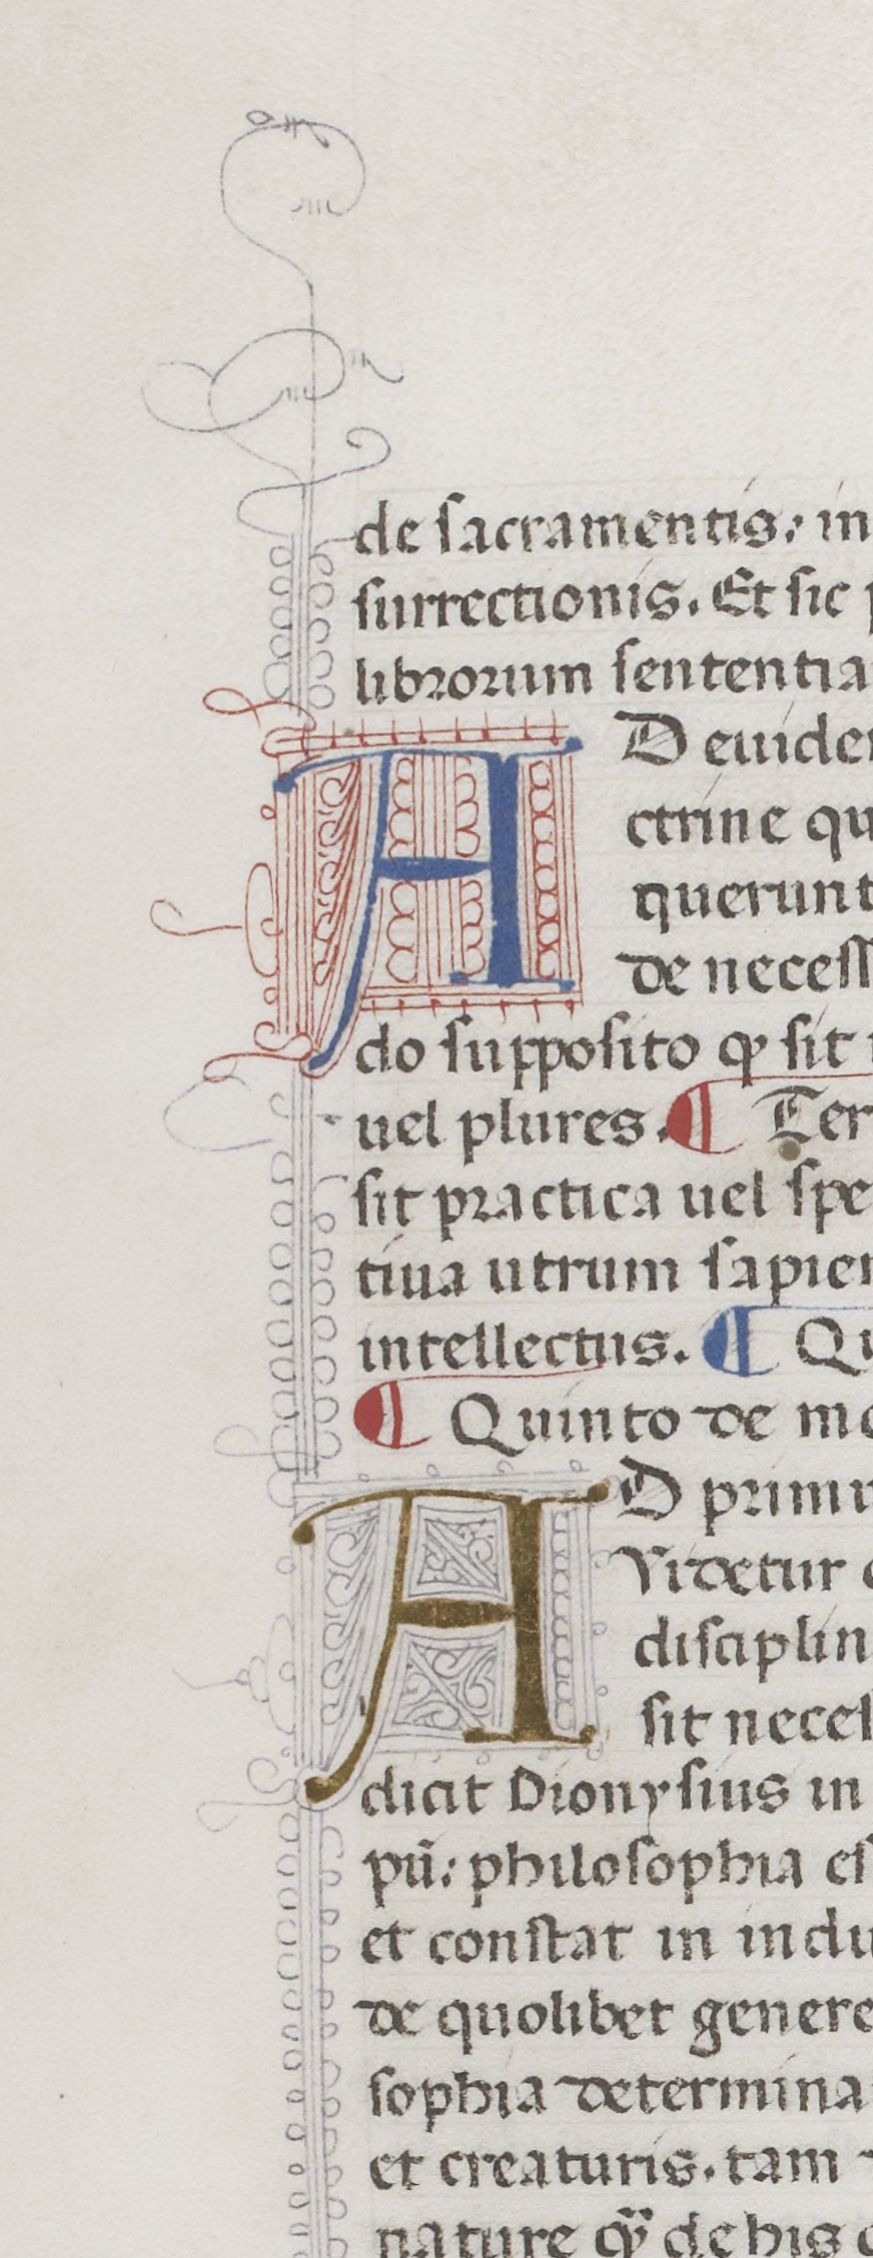 de sacramentis: in
surrectionis. Et sic
librorum sententia
AD euiden
ctrine qu
querunt
de necess
do supposito ꝙ sit
uel plures. ¶ Ter
sit practica uel spe
tiua utrum sapien
intellectus. ¶ Qu
¶ Quinto de mo
AD primu
Videtur
disciplin
sit necess
dicit Dionysius in
pũ: philosophia es
et constat in indu
de quolibet genere
sophia determina
et creaturis. tam
nature ꝙ de his